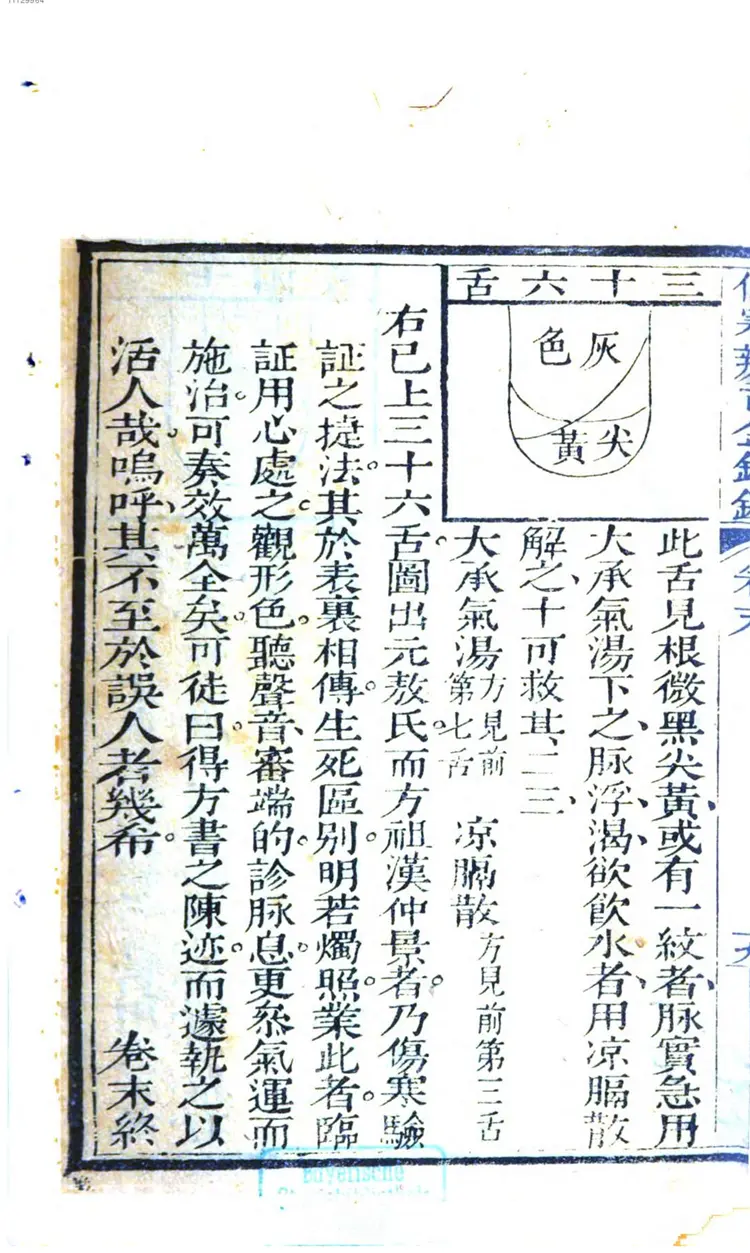 11129984
三十六舌
灰色
尖黃
此舌見根微黑尖黃、或有一紋者、脉實急用
大承氣湯下之、脉浮、渴欲飲水者、用凉膈散
解之、十可救其、二三、
大承氣湯方見前第七舌 凉膈散方見前第三舌
右已上三十六舌。圖出元敖氏。而方祖漢仲景者。乃傷寒驗
証之捷法。其於表裏相傳。生死區别。明若燭照。業此者。臨
証用心處之。觀形色。聽聲音、審端的。診脉息。更叅氣運而
施治。可奏效萬全矣。可徒曰。得方書之陳迹。而遽執之以
活人哉。嗚呼、其不至於誤人者幾希。 卷末終
Bayerische